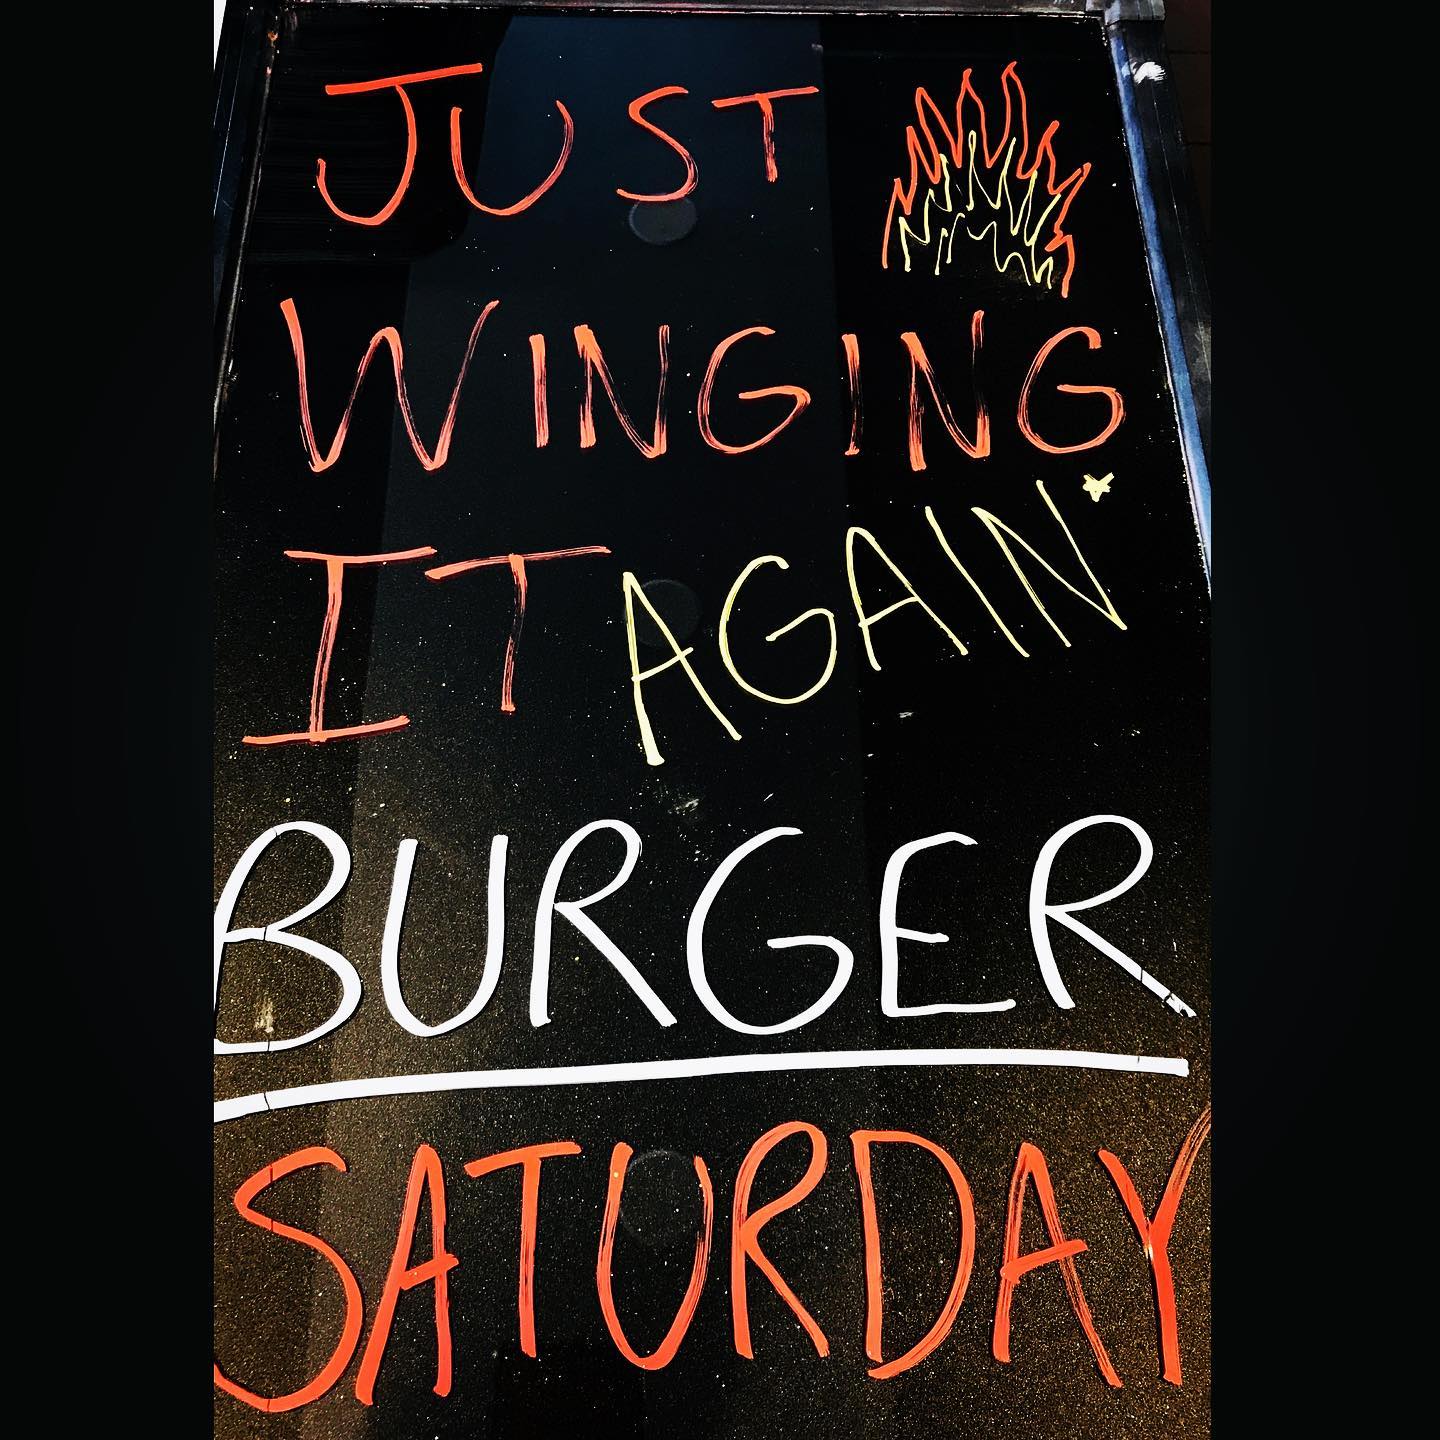 JUST
WINGING
IT AGAIN*
BURGER
SATURDAY